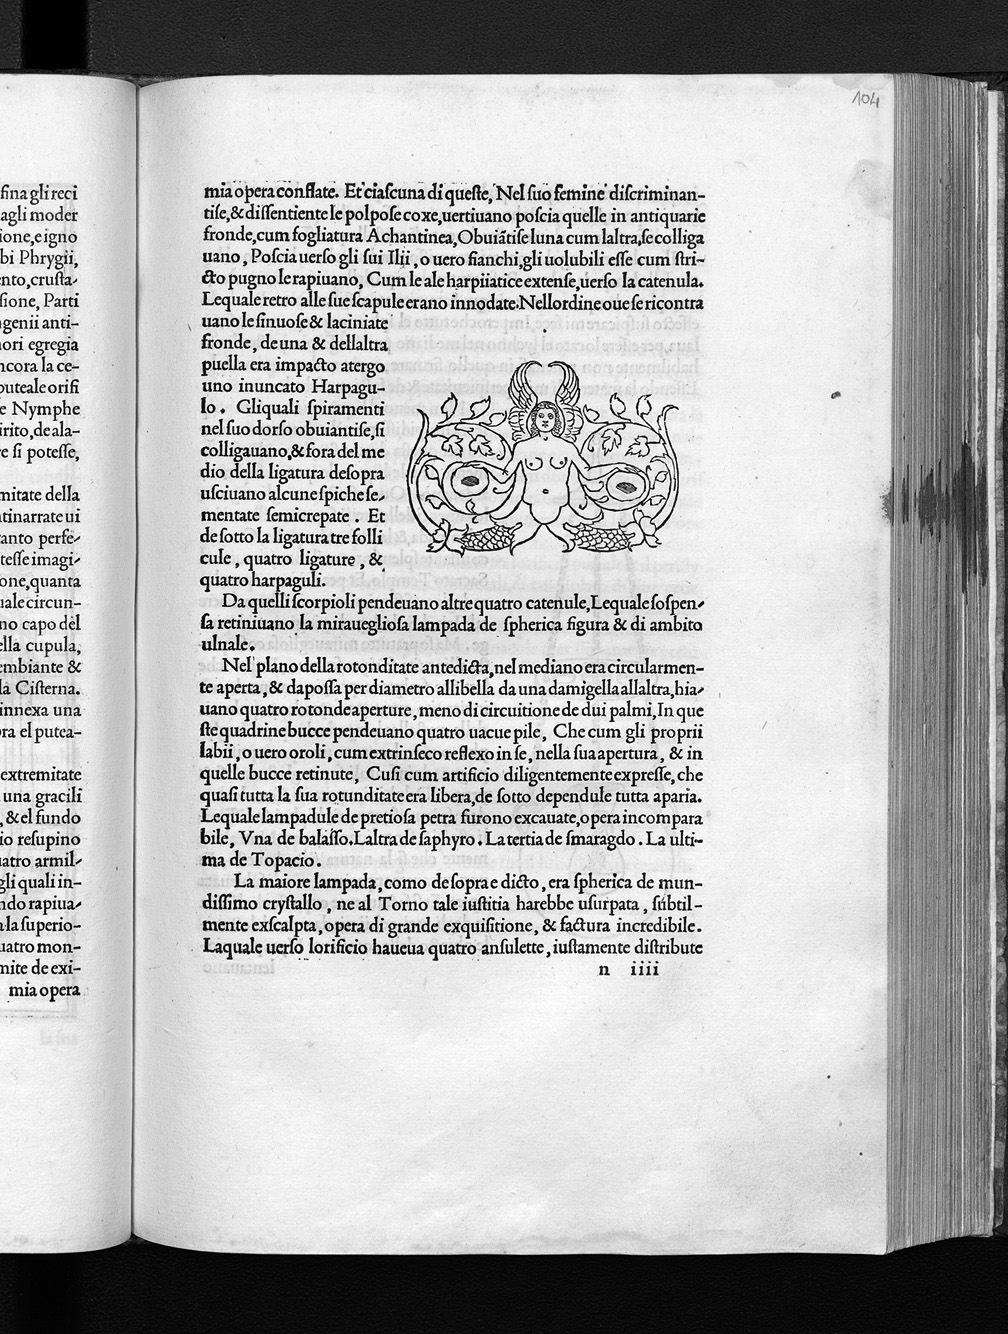 fina gli reci
agli moder
ione, e igno
bi Phrygii,
ento, crusta-
sione, Parti
ngenii anti-
nori egregia
ncora la ce-
puteale orifi
e Nymphe
irito, de ala-
re si potesse,
mitate della
tinarrate ui
anto perfe-
tesse imagi-
one, quanta
uale circun-
no capo del
ella cupula,
embiante &
la Cisterna.
innexa una
ra el putea-
extremitate
una gracili
, & el fundo
io resupino
uatro armil-
gli quali in-
ndo rapiua-
a la superio-
uatro mon-
mite de exi-
mia opera
104
mia opera conflate. Et ciascuna di queste, Nel suo femine discriminan-
tise, & dissentiente le polpose coxe, uertiuano poscia quelle in antiquarie
fronde, cum fogliatura Achantinea, Obuiãtise luna cum laltra, se colliga
uano, Poscia uerso gli sui Ilii, o uero fianchi, gli uolubili esse cum stri-
cto pugno le rapiuano, Cum le ale harpiiatice extense, uerso la catenula.
Lequale retro alle sue scapule erano innodate. Nellordine oue se ricontra
uano le sinuose & laciniate
fronde, de una & dellaltra
puella era impacto atergo
uno inuncato Harpagu-
lo. Gliquali spiramenti
nel suo dorso obuiantise, si
colligauano, & fora del me
dio della ligatura desopra
usciuano alcune spiche se-
mentate semicrepate. Et
de sotto la ligatura tre folli
cule, quatro ligature, &
quatro harpaguli.
Da quelli scorpioli pendeuano altre quatro catenule, Lequale sospen-
sa retiniuano la mirauegliosa lampada de spherica figura & di ambito
ulnale.
Nel plano della rotonditate antedicta, nel mediano era circularmen-
te aperta, & daposfa per diametro allibella da una damigella allaltra, hia-
uano quatro rotonde aperture, meno di circuitione de dui palmi, In que
ste quadrine bucce pendeuano quatro uacue pile, Che cum gli proprii
labii, o uero oroli, cum extrinseco reflexo in se, nella sua apertura, & in
quelle bucce retinute, Cusi cum artificio diligentemente expresse, che
quasi tutta la sua rotunditate era libera, de sotto dependule tutta aparia.
Lequale lampadule de pretiosa petra furono excauate, opera incompara
bile, Vna de balasso. Laltra de saphyro. La tertia de smaragdo. La ulti-
ma de Topacio.
La maiore lampada, como desopra e dicto, era spherica de mun-
dissimo crystallo, ne al Torno tale iustitia harebbe usurpata, subtil-
mente exscalpta, opera di grande exquisitione, & factura incredibile.
Laquale uerso lorificio haueua quatro ansulette, iustamente distribute
n iiii